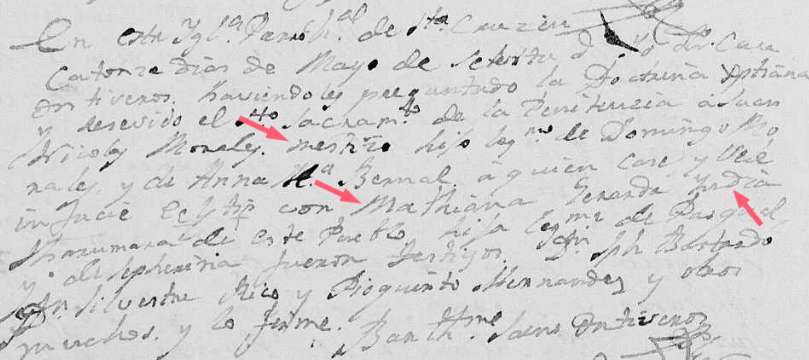 En esta Ygl.ª Parroch.ªl de Sta Cruz en
Catorze dias de Mayo de setenta y Dr. Cura
Ontiveros, haviendoles preguntado la Doctrina Xptiana
y resevido el Sto Sacramto de la Penitenzia a Juan
Nicolas Morales, mestizo hijo legmo de Domingo Mo
rales y de Anna M.ª Bernal a quien Case y Vele
in facie con Mathiana Gerarda yndia
de este Pueblo hija legma de Pasqual
y fueron testigos Jph
Silvestre Rico y Hernandez y otros
muchos. y lo firme. Barthme Saens Ontiveros